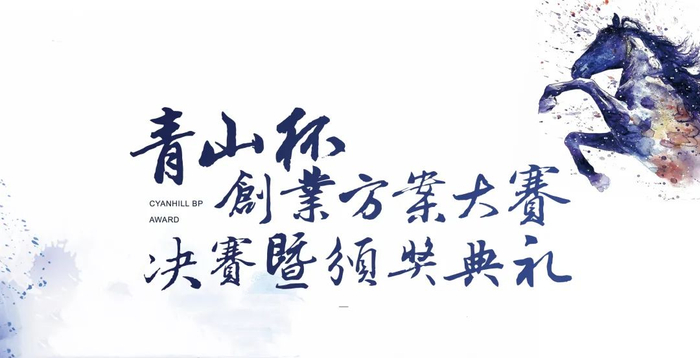 青山杯
創業方案大賽
CYANHILL BP
AWARD
决賽暨頒奖典礼